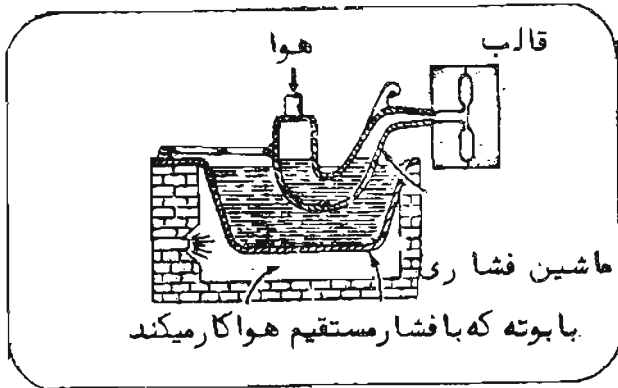 هوا
قالب
ماشین فشاری
با بوته که با فشار مستقیم هوا کار میکند